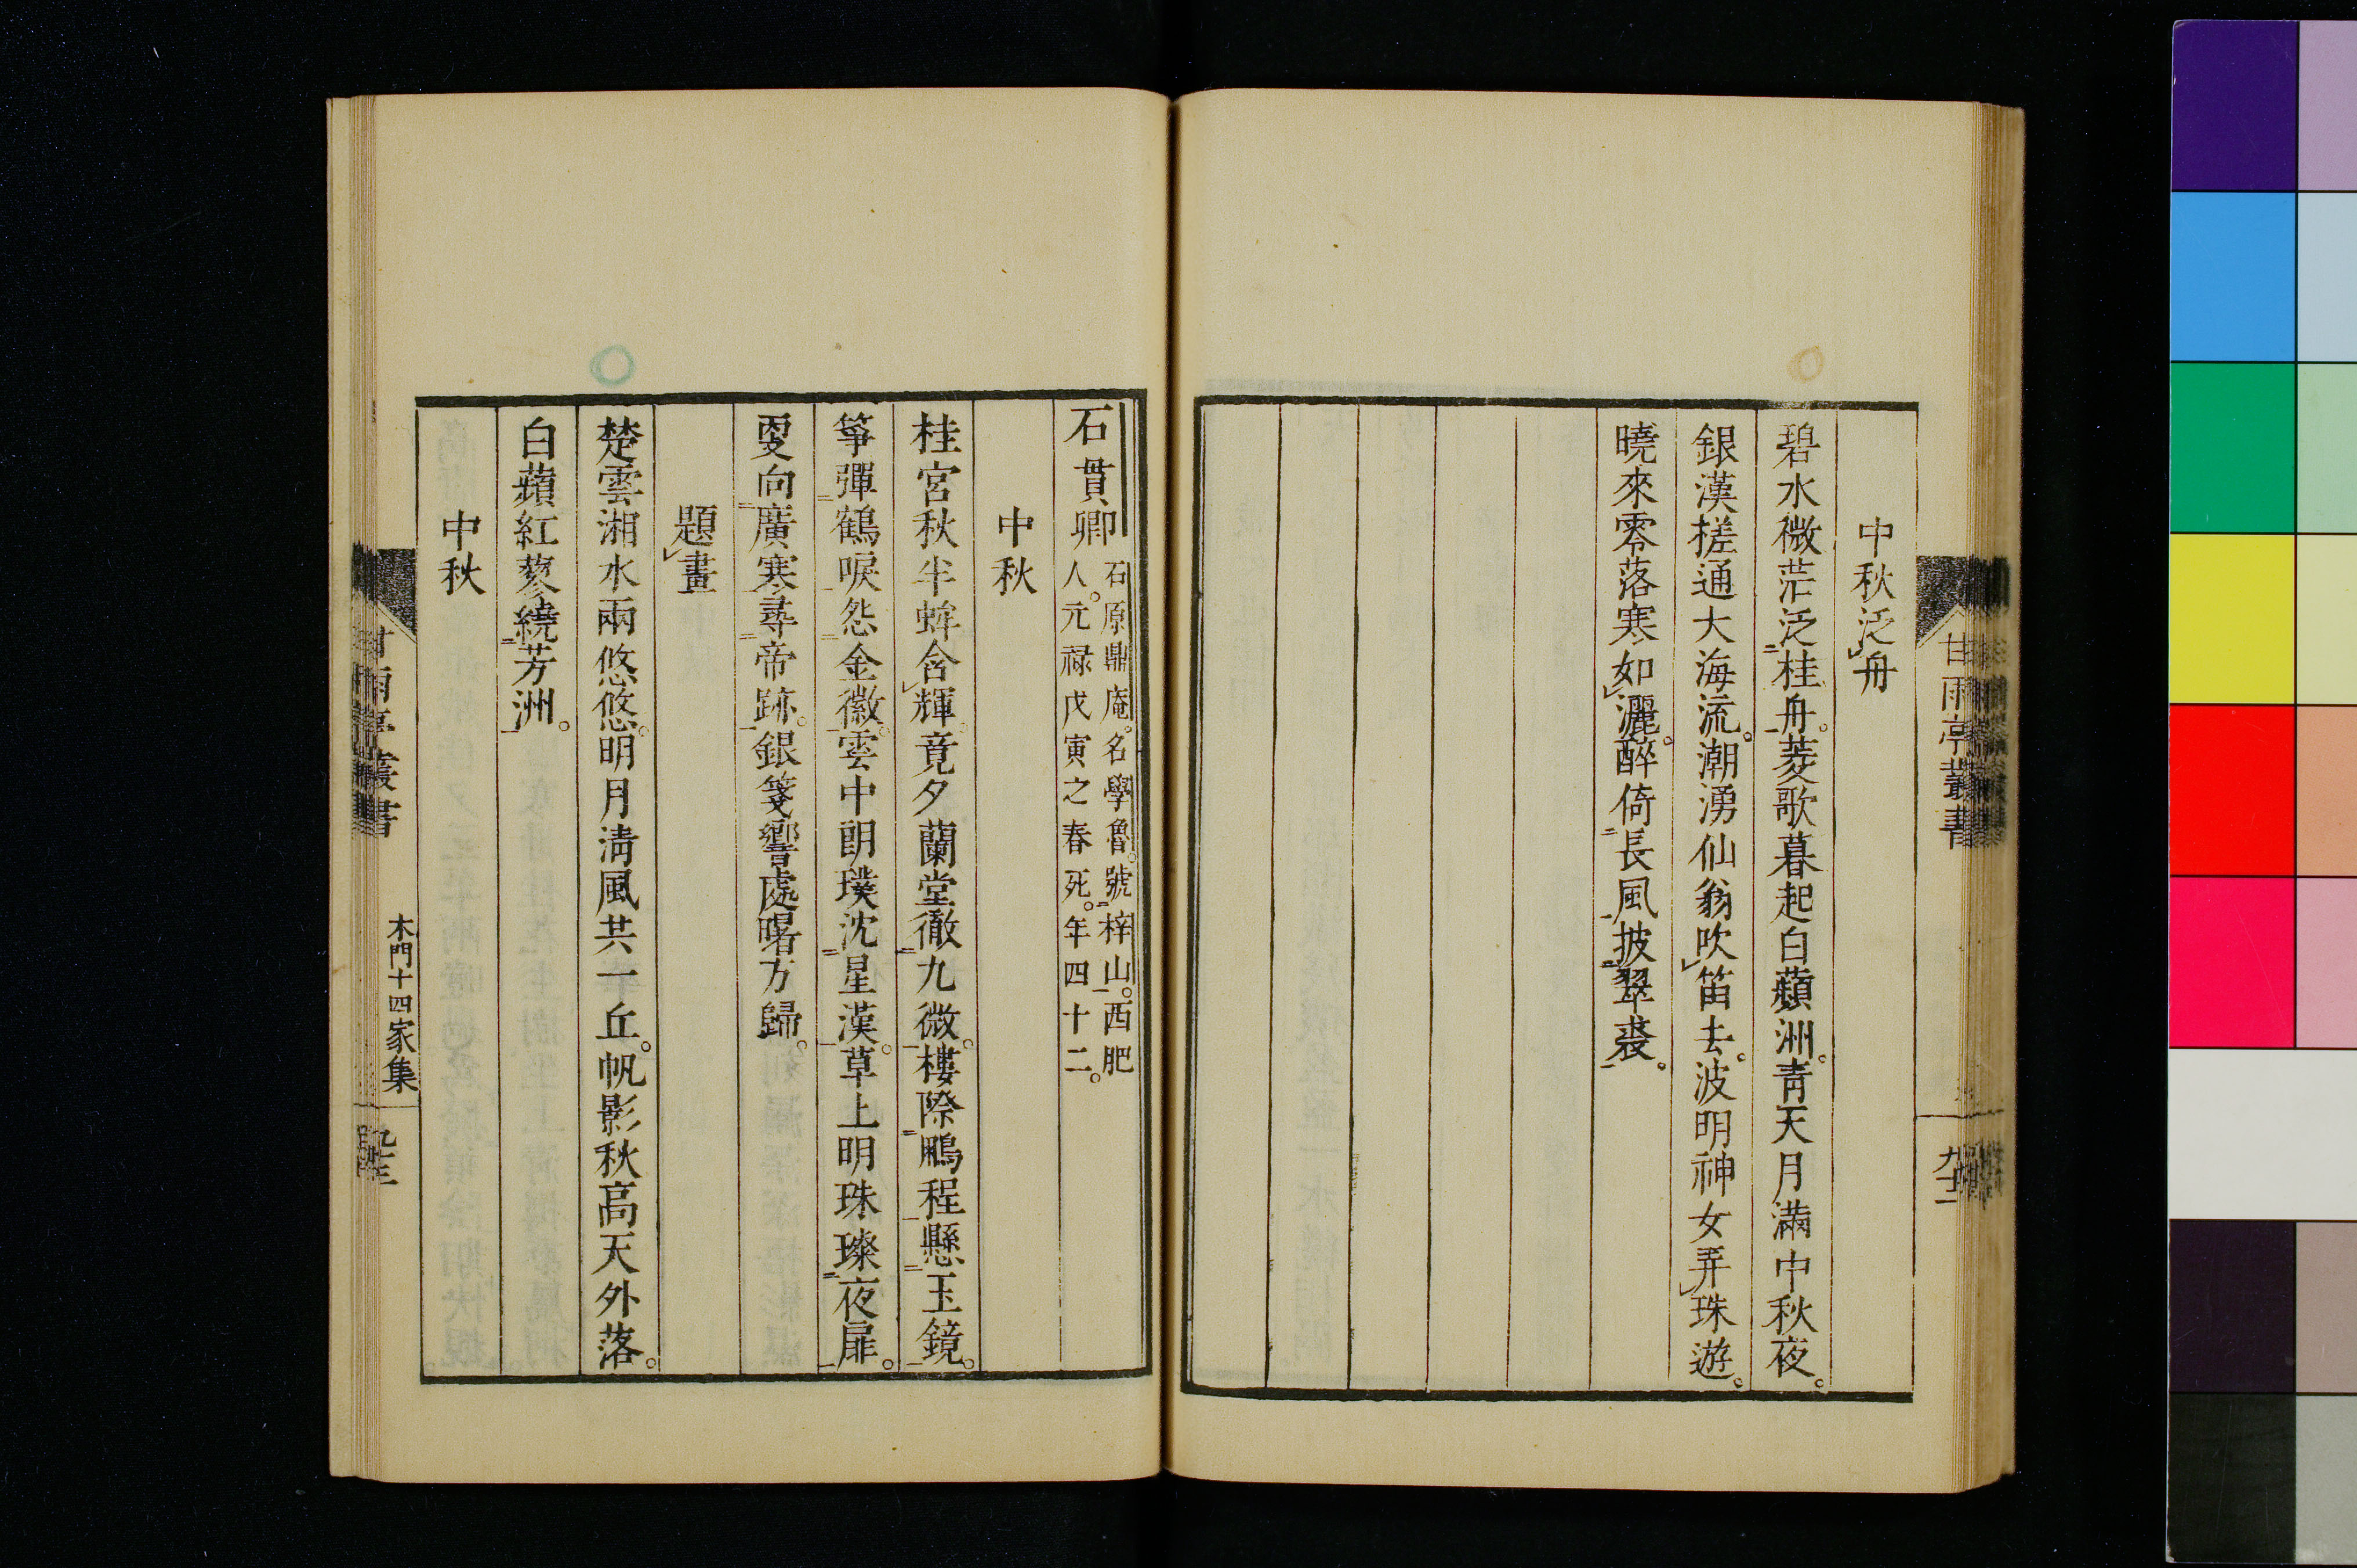 甘雨亭叢書
中秋泛舟
碧水微茫泛桂舟。菱歌暮起白蘋洲。青天月滿中秋夜。
銀漢槎通大海流。潮湧仙翁吹笛去。波明神女弄珠遊。
曉來零落寒如灑。醉倚長風披翠裘。
石貫卿
石原鼎庵。名學魯。號梓山。西肥
人。元禄戊寅之春死。年四十二。
中秋
桂宮秋半蜯含輝。竟夕蘭堂徹九微。樓際鵰程懸玉鏡。
箏彈鶴唳怨金徽。雲中朗璞沈星漢。草上明珠璨夜扉。
更向廣寒尋帝跡。銀箋響處曙方歸。
題畫
楚雲湘水兩悠悠。明月淸風共一丘。帆影秋高天外落。
白蘋紅蓼繞芳洲。
中秋
甘雨亭叢書
木門十四家集